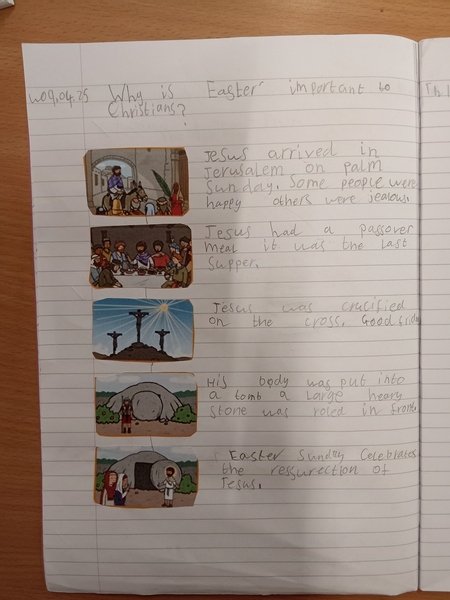 W09.04.25 Why is Easter important to
Christians?
Jesus arrived in
Jerusalem on palm
Sunday. Some people were
happy others were jealous.
Jesus had a passover
meal it was the last
supper.
Jesus was crucified
on the cross. Good friday
His body was put into
a tomb a large heavy
stone was roled in front.
Easter Sunday Celebrates
the ressurection of
Jesus.